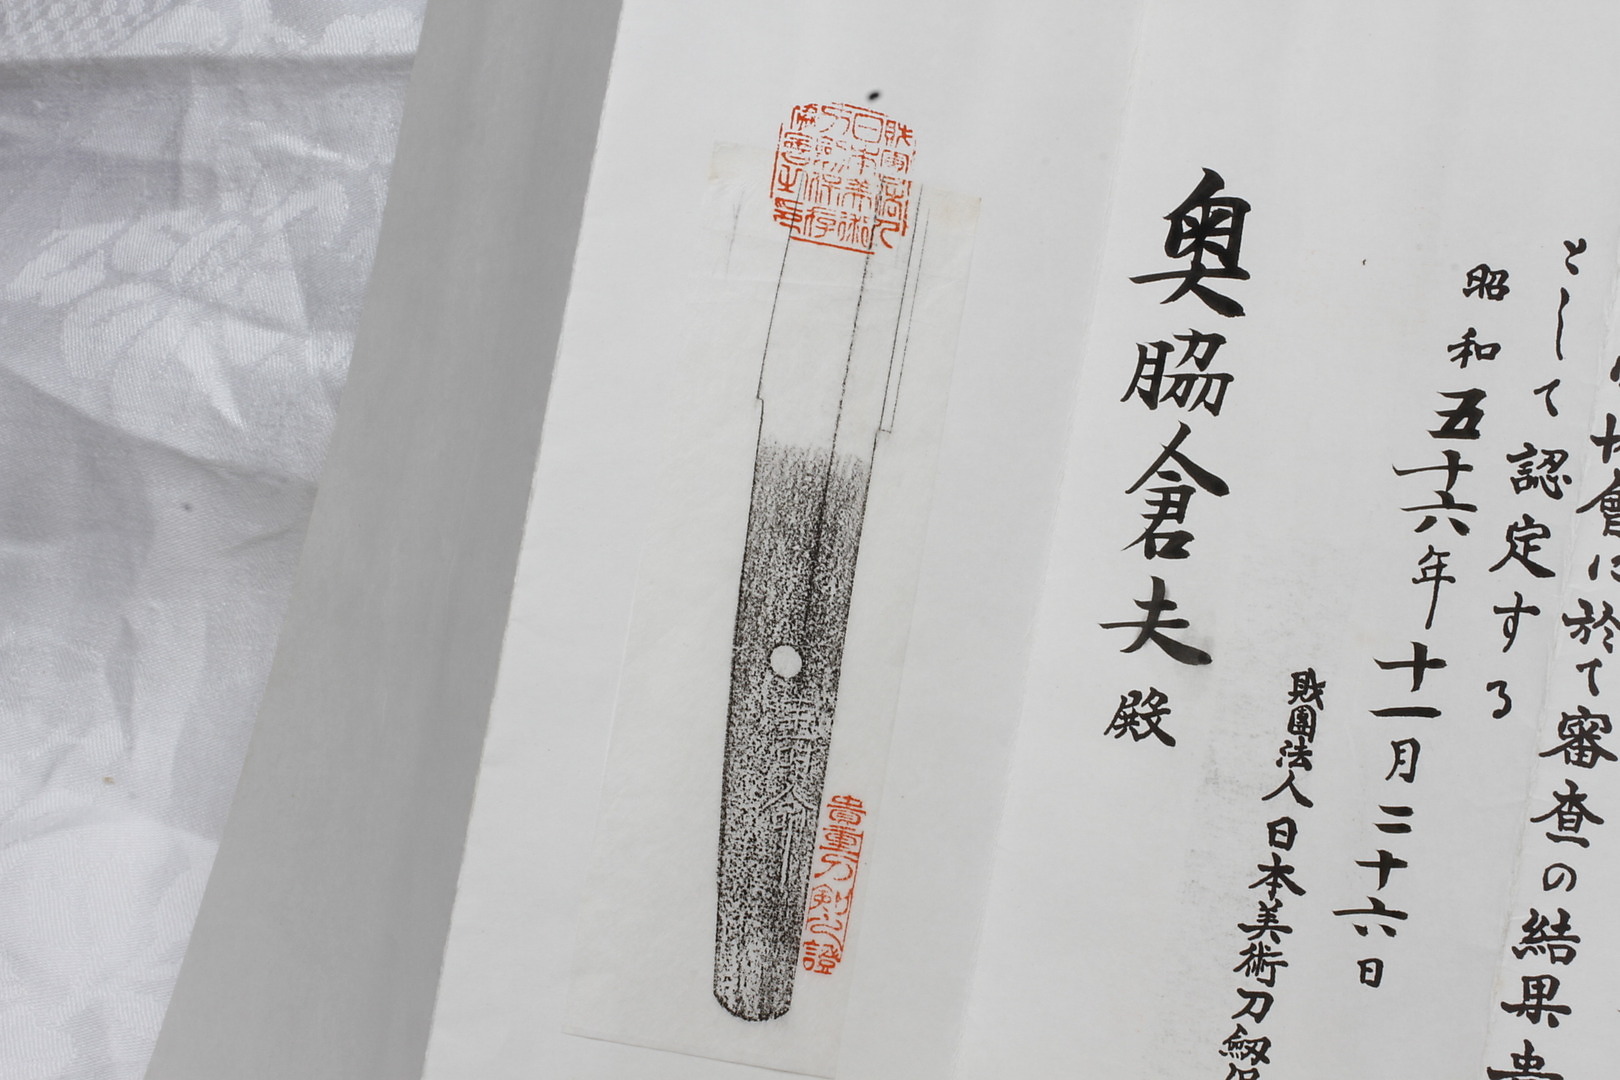 會に於て審査の結果貴
として認定する
昭和五十六年十一月二十六日
財團法人日本美術刀劔保
奥脇倉夫殿
財團法人
日本美術
刀劍保存
協會之印
貴重刀剣之證